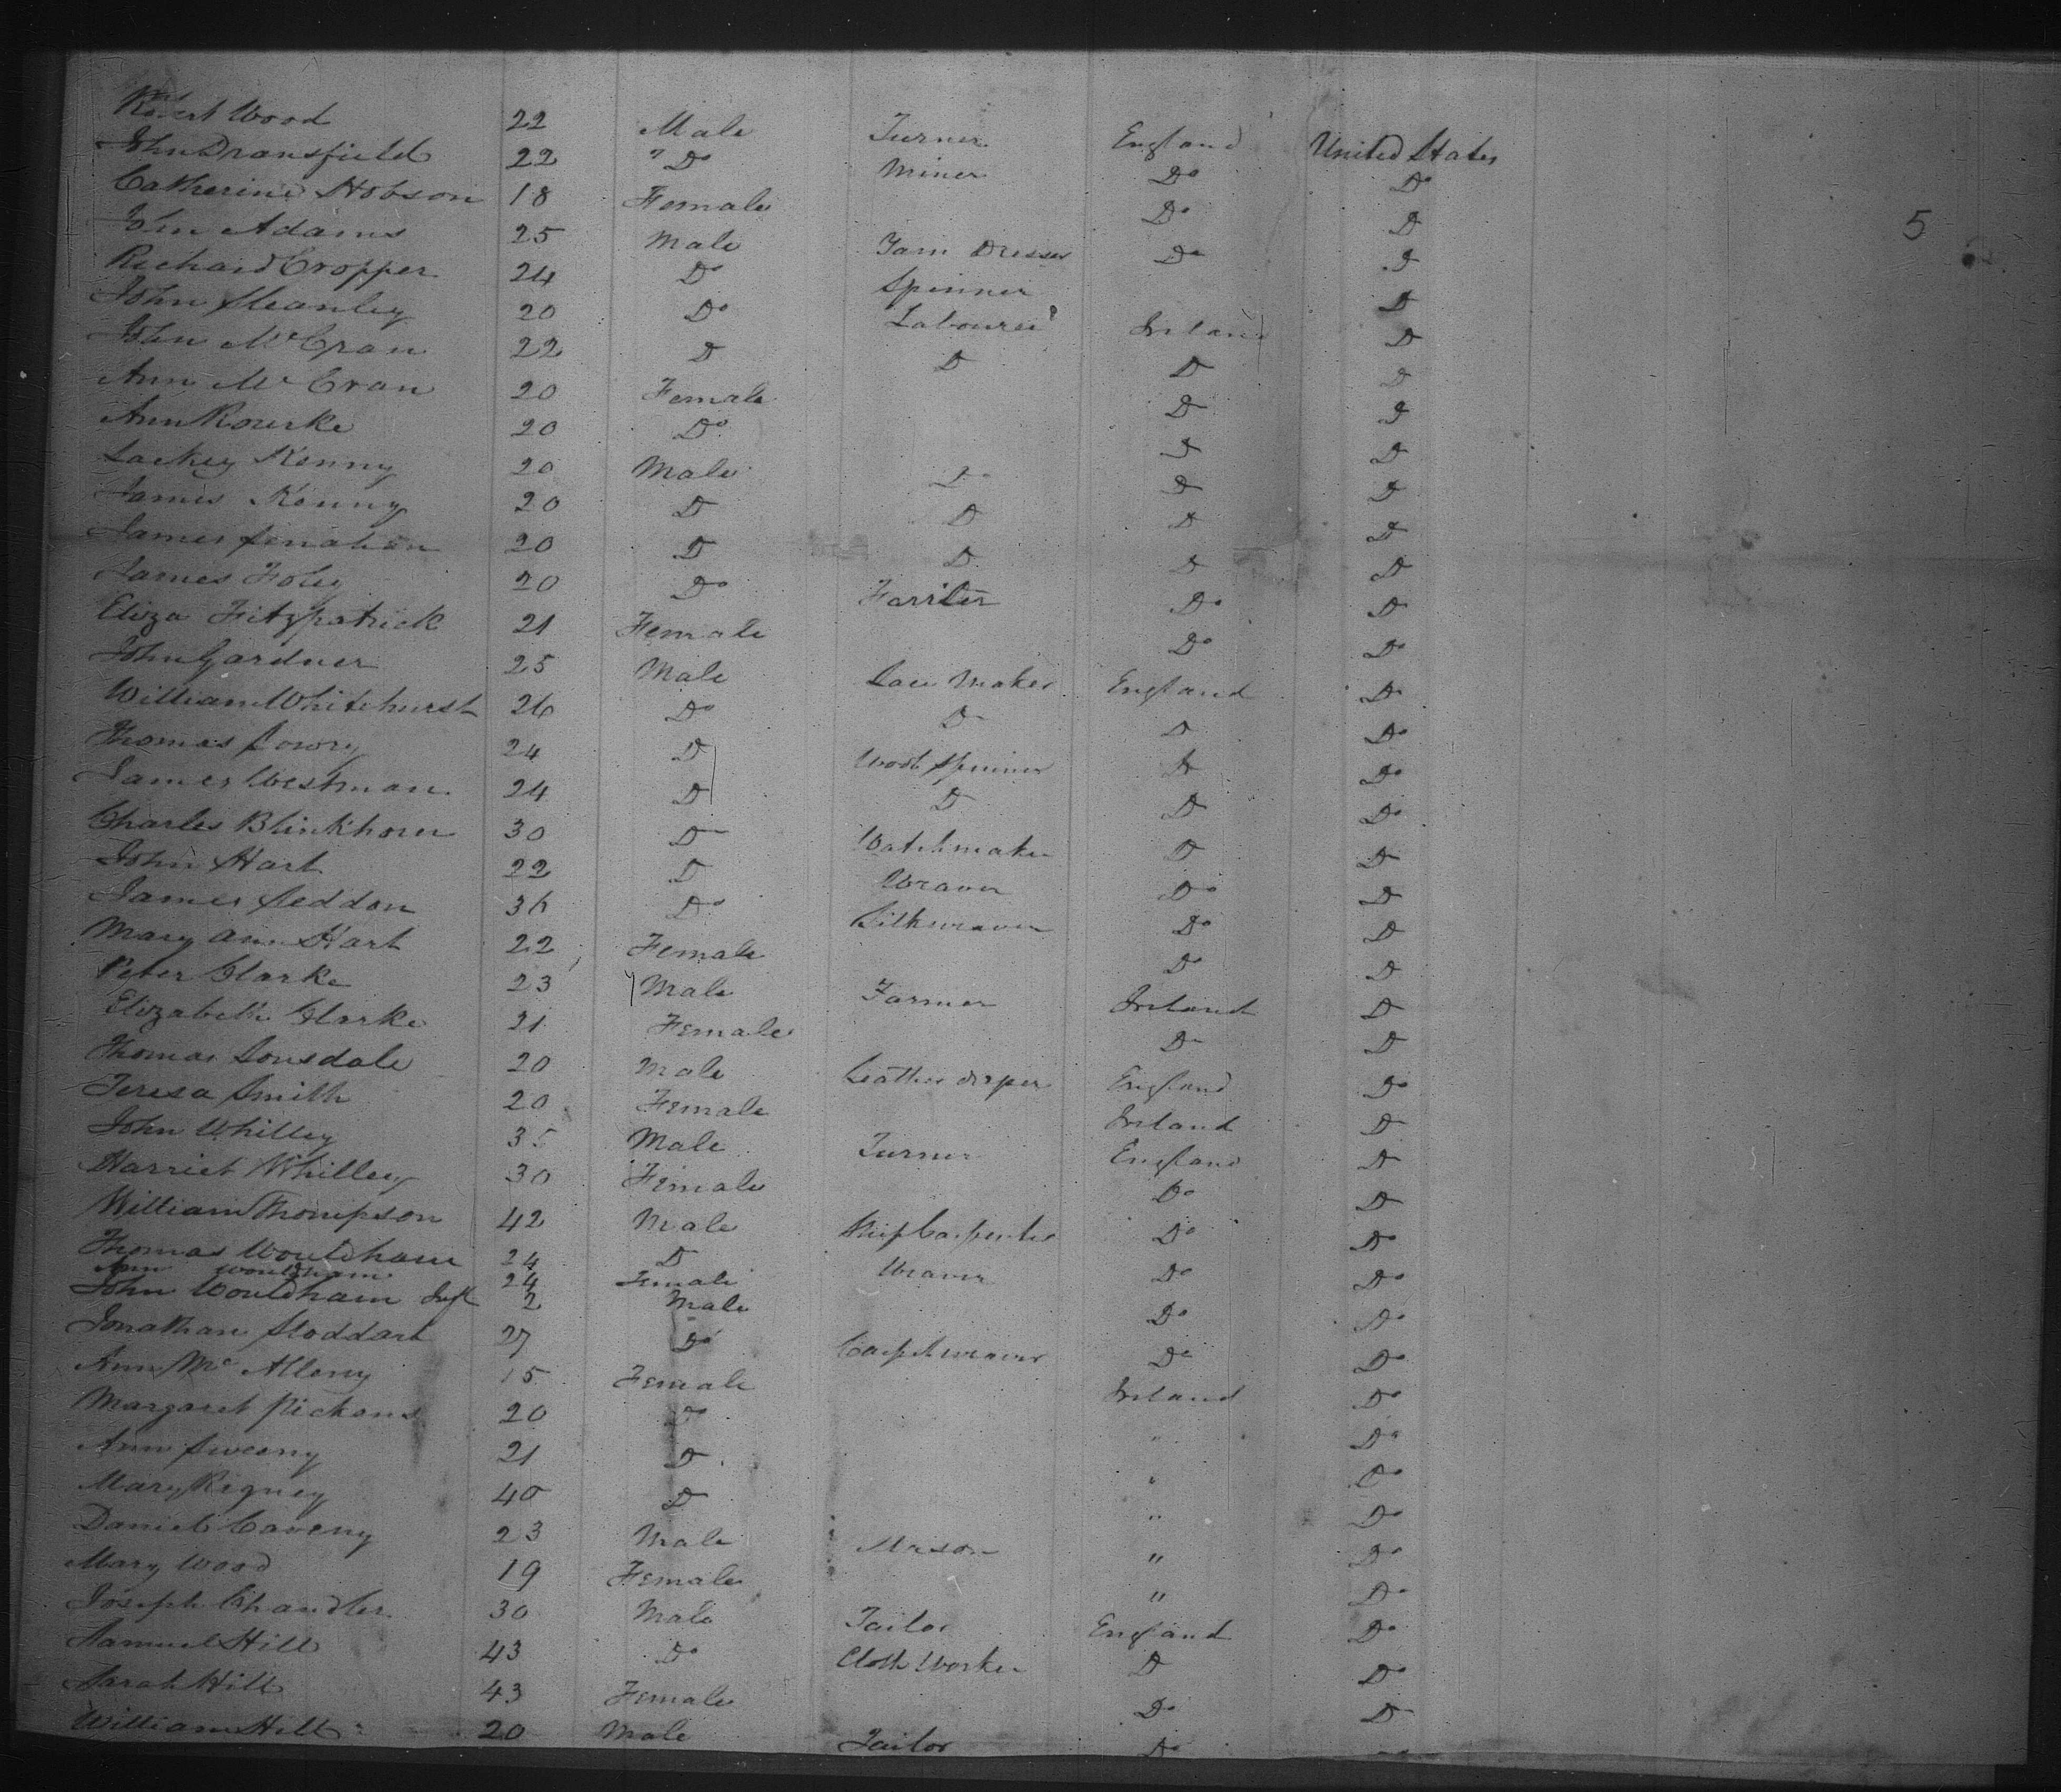 Robert Wood 22 Male Turner England United States
John Dransfield 22 Do Miner Do Do
Catherine Hobson 18 Female Do D
John Adams 25 Male Yarn Dresser Do D
Richard Cropper 24 Do Spinner D
John Meanley 20 Do Labourer Ireland D
John McCran 22 D D D D
Ann McCran 20 Female D D
Ann Rourke 20 Do D D
Lackey Kenny 20 Male Do D D
James Kenny 20 D D D D
James Lenahan 20 D D D D
James Foley 20 Do Farrier Do D
Eliza Fitzpatrick 21 Female Do Do
John Gardner 25 Male Lace Maker England Do
William Whitehurst 26 Do D D Do
Thomas Lowry 24 D Wool Spinner D Do
James Westman 24 D D D Do
Charles Blinkhorn 30 D Watchmaker D D
John Hart 22 D Weaver Do D
James Seddon 36 Do Silk weaver Do D
Mary Ann Hart 22 Female Do D
Peter Clarke 23 Male Farmer Ireland D
Elizabeth Clarke 21 Female D D
Thomas Lonsdale 20 Male Leather draper England Do
Teresa Smith 20 Female Ireland D
John Whilley 35 Male Turner England D
Harriet Whilley 30 Female Do D
William Thompson 42 Male Ship Carpenter Do Do
Thomas Wouldham 24 D Weaver Do Do
Ann Wouldham 24 Female
John Wouldham Inft 2 Male Do Do
Jonathan Stoddart 27 Do Carpet weaver Do Do
Ann McAlleny 15 Female Ireland Do
Margaret Pickens 20 Do " Do
Ann Sweeny 21 D " Do
Mary Rigney 40 D " Do
Daniel Caveny 23 Male Mason " Do
Mary Wood 19 Female " Do
Joseph Chandler 30 Male Tailor England Do
Samuel Hill 43 Do Cloth Worker D Do
Sarah Hill 43 Female Do D
William Hill 20 Male Tailor Do
5